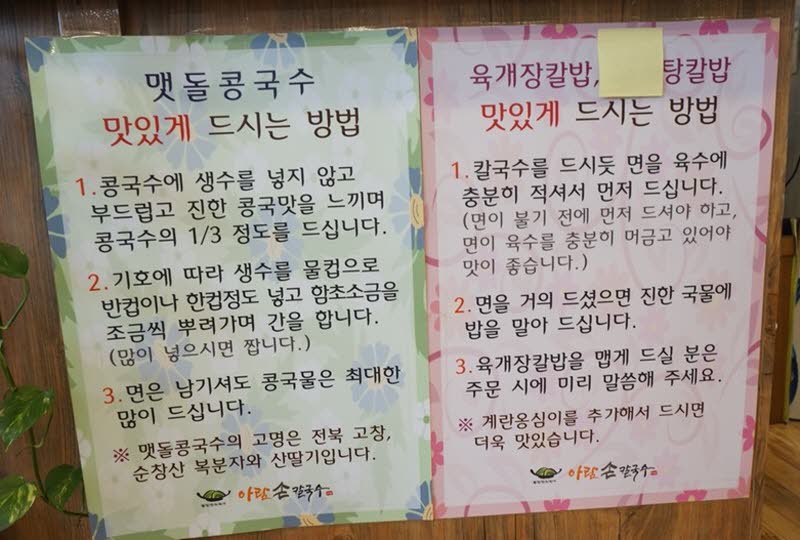 맷돌콩국수
맛있게 드시는 방법
1. 콩국수에 생수를 넣지 않고
부드럽고 진한 콩국맛을 느끼며
콩국수의 1/3 정도를 드십니다.
2. 기호에 따라 생수를 물컵으로
반컵이나 한컵정도 넣고 함초소금을
조금씩 뿌려가며 간을 합니다.
(많이 넣으시면 짭니다.)
3. 면은 남기셔도 콩국물은 최대한
많이 드십니다.
※ 맷돌콩국수의 고명은 전북 고창,
순창산 복분자와 산딸기입니다.
아람 손칼국수
육개장칼밥, 탕칼밥
맛있게 드시는 방법
1. 칼국수를 드시듯 면을 육수에
충분히 적셔서 먼저 드십니다.
(면이 불기 전에 먼저 드셔야 하고,
면이 육수를 충분히 머금고 있어야
맛이 좋습니다.)
2. 면을 거의 드셨으면 진한 국물에
밥을 말아 드십니다.
3. 육개장칼밥을 맵게 드실 분은
주문 시에 미리 말씀해 주세요.
※ 계란옹심이를 추가해서 드시면
더욱 맛있습니다.
아람 손칼국수